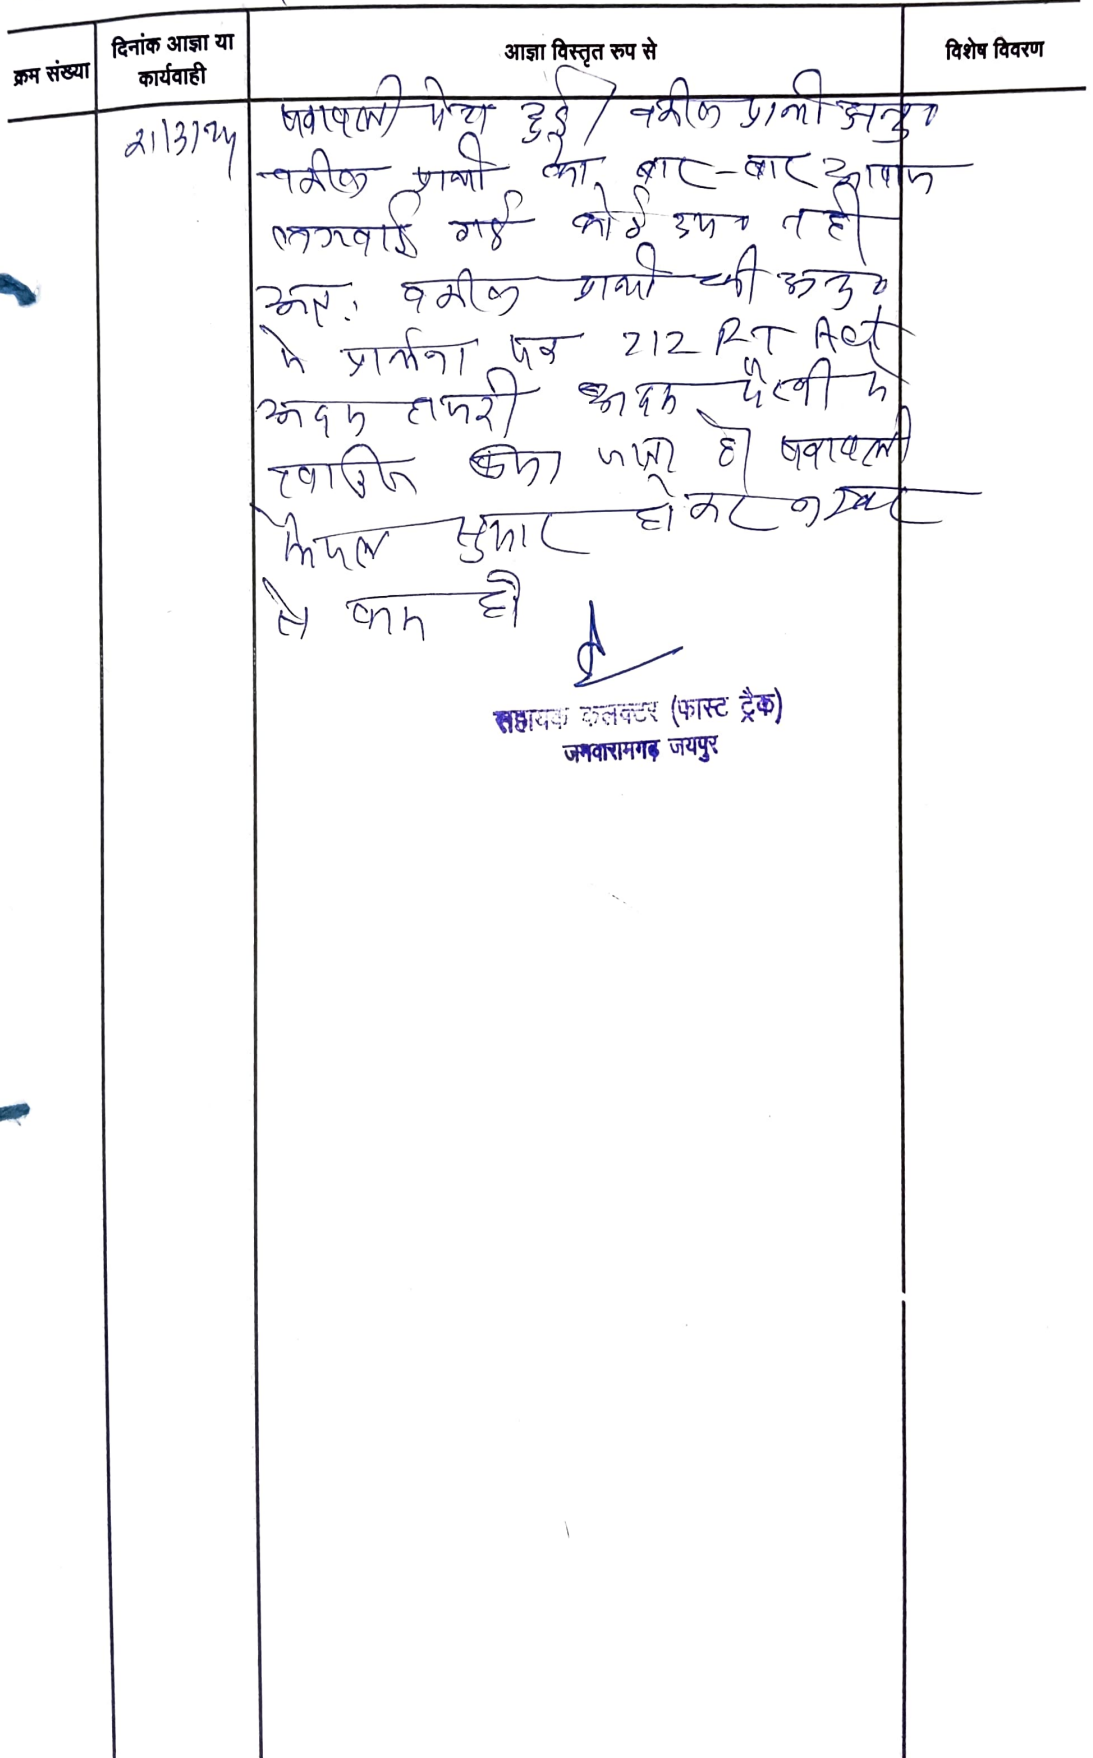 क्रम संख्या
दिनांक आज्ञा या
कार्यवाही
आज्ञा विस्तृत रुप से
विशेष विवरण
21/3/24
पत्रावली पेश हुई / वकील प्रार्थी अनु०
वकील प्रार्थी को बार-बार आवाज
लगवाई गई कोई उप० नही
अतः वकील प्रार्थी की अनु०
मे प्रार्थना पत्र 212 RT Act
अदम हाजरी अदम पैरवी मे
खारिज किया जाता है पत्रावली
फैसल सुमार होकर नम्बर
से कम हो
सहायक कलक्टर (फास्ट ट्रैक)
जमवारामगढ़ जयपुर